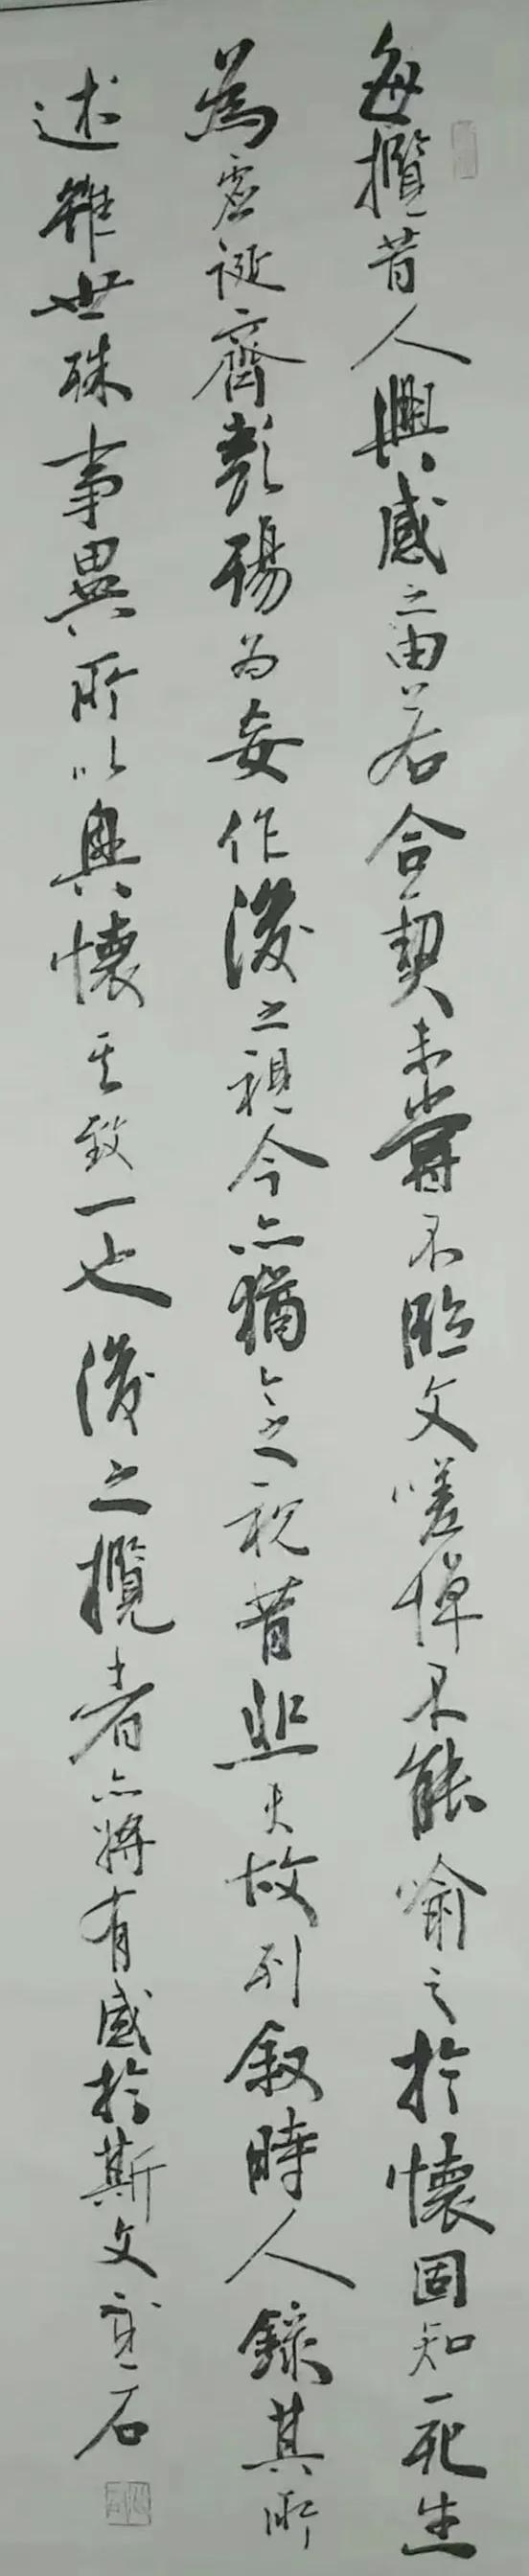 每攬昔人興感之由若合一契未嘗不臨文嗟悼不能喻之於懷固知一死生
為虛誕齊彭殤為妄作後之視今亦猶今之視昔悲夫故列叙時人錄其所
述雖世殊事異所以興懷其致一也後之攬者亦將有感於斯文石